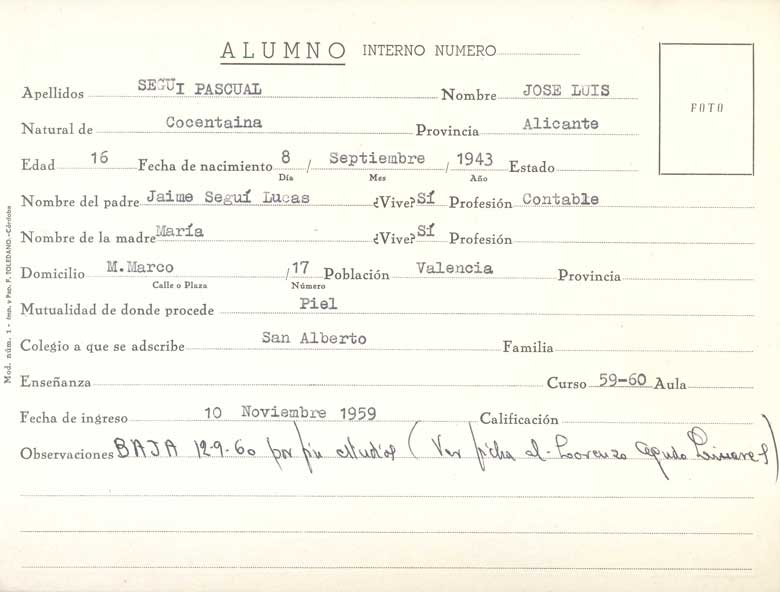 ALUMNO INTERNO NUMERO
Apellidos SEGUI PASCUAL Nombre JOSE LUIS
FOTO
Natural de Cocentaina Provincia Alicante
Edad 16 Fecha de nacimiento 8 / Septiembre / 1943 Estado
Día Mes Año
Nombre del padre Jaime Seguí Lucas ¿Vive? Sí Profesión Contable
Nombre de la madre María ¿Vive? Sí Profesión
Domicilio M. Marco / 17 Población Valencia Provincia
Calle o Plaza Número
Mutualidad de donde procede Piel
Colegio a que se adscribe San Alberto Familia
Enseñanza Curso 59-60 Aula
Fecha de ingreso 10 Noviembre 1959 Calificación
Observaciones BAJA 12-9-60 por fin estudios (Ver ficha al. Lorenzo Agudo Linares)
Mod. núm. 1 - Imp. y Pap. F. TOLEDANO.-Córdoba